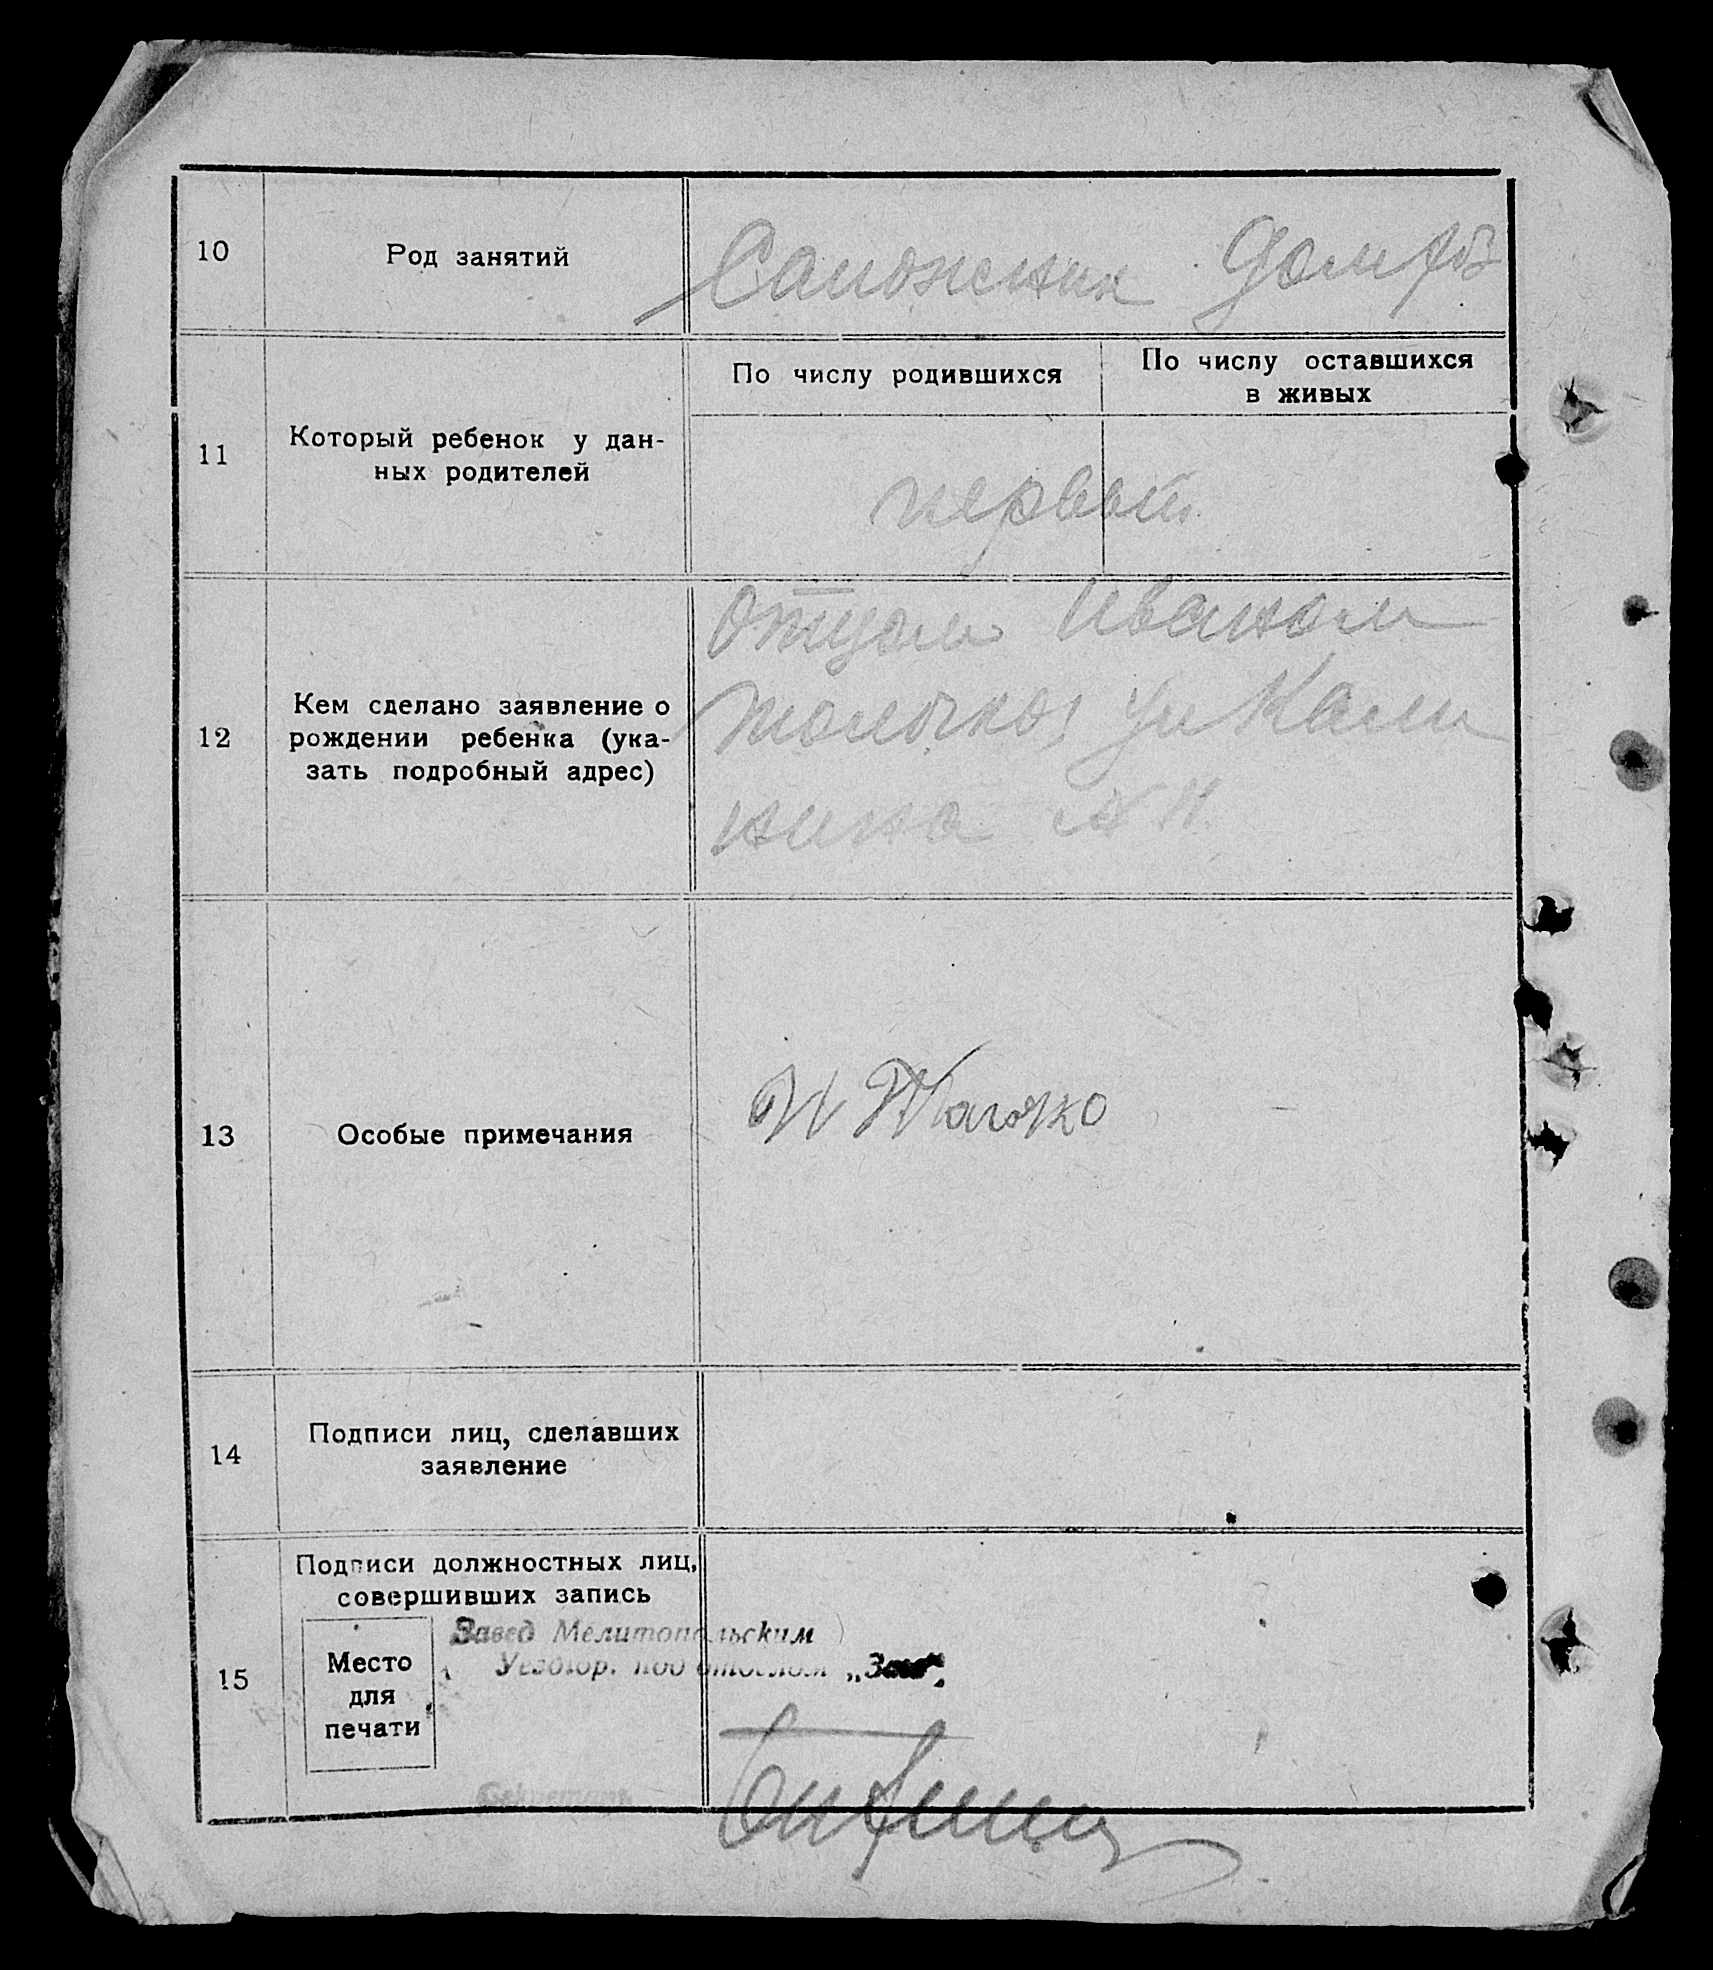 10 Род занятий Сапожник Дом
11 Который ребенок у дан-
ных родителей
По числу родившихся
По числу оставшихся
в живых
первый
12 Кем сделано заявление о
рождении ребенка (ука-
зать подробный адрес)
Отцом Иваном
Ул Кали
нина
13 Особые примечания
И
14 Подписи лиц, сделавших
заявление
15 Подписи должностных лиц,
совершивших запись
Место
для
печати
Завед Мелитопольским
Уездгор. под отделом „Загс“
Секретарь